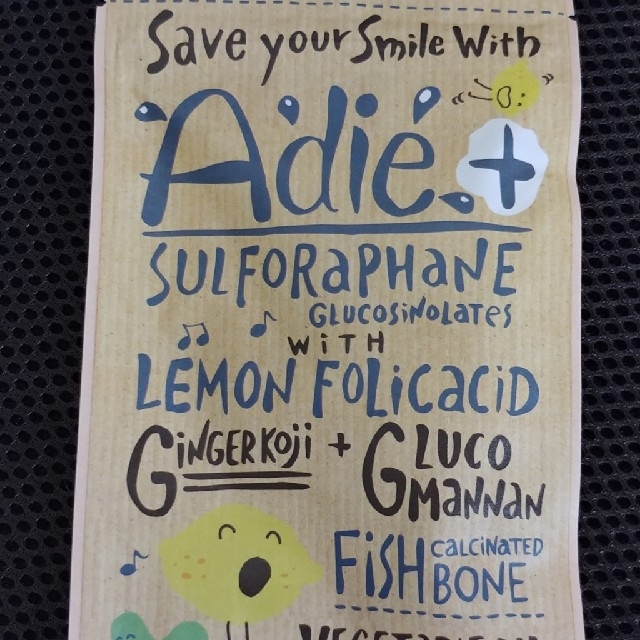 Save your Smile With
Adie +
SULFORAPHANE
GLUCOSiNOLATES
WiTH
LEMON FOLiCaCiD
GiNGERKOji + GLUCO
MaNNaN
FiSH CaLCiNATED
BONE